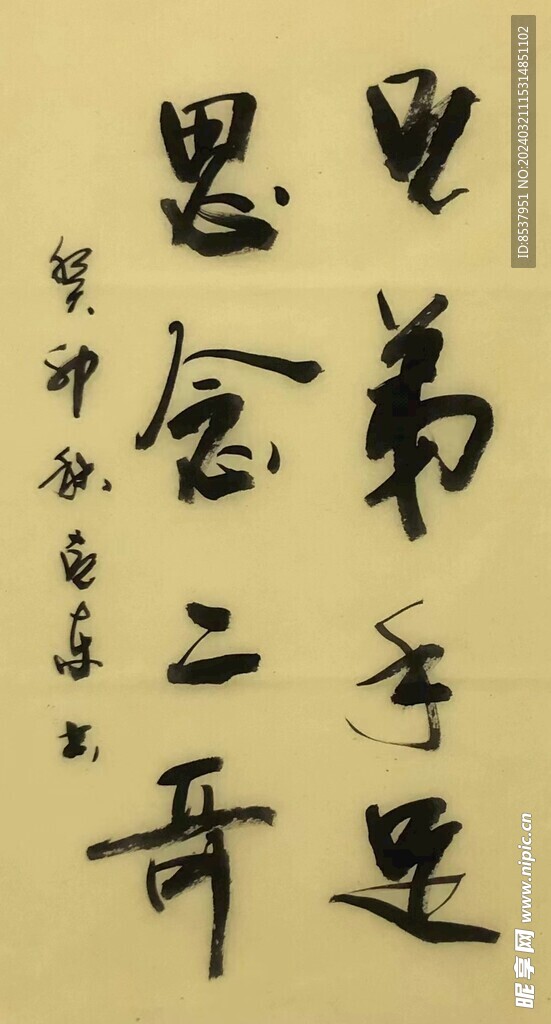 兄弟手足
思念二哥
癸卯秋

ID:8537951 NO:20240321115314851102
昵享网 www.nipic.cn